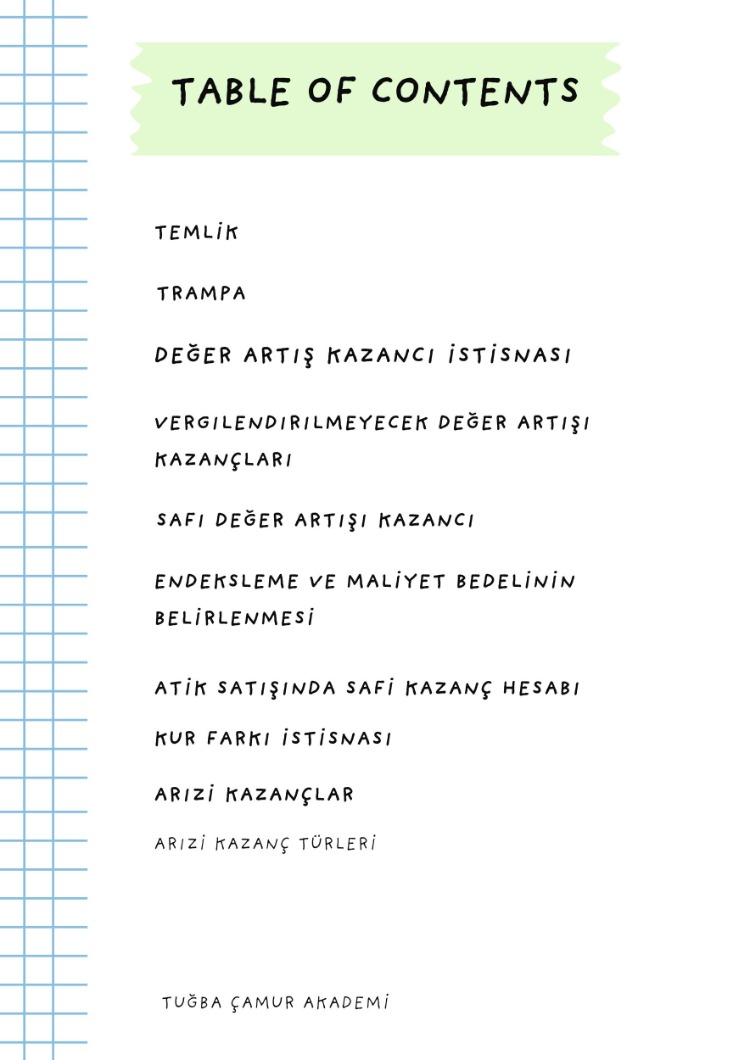 TABLE OF CONTENTS
TEMLİK
TRAMPA
DEĞER ARTIŞ KAZANCI İSTİSNASI
VERGILENDIRILMEYECEK DEĞER ARTIŞI
KAZANÇLARI
SAFI DEĞER ARTIŞI KAZANCI
ENDEKSLEME VE MALİYET BEDELİNİN
BELİRLENMESİ
ATİK SATIŞINDA SAFİ KAZANÇ HESABI
KUR FARKI İSTİSNASI
ARIZİ KAZANÇLAR
ARIZİ KAZANÇ TÜRLERİ
TUĞBA ÇAMUR AKADEMİ